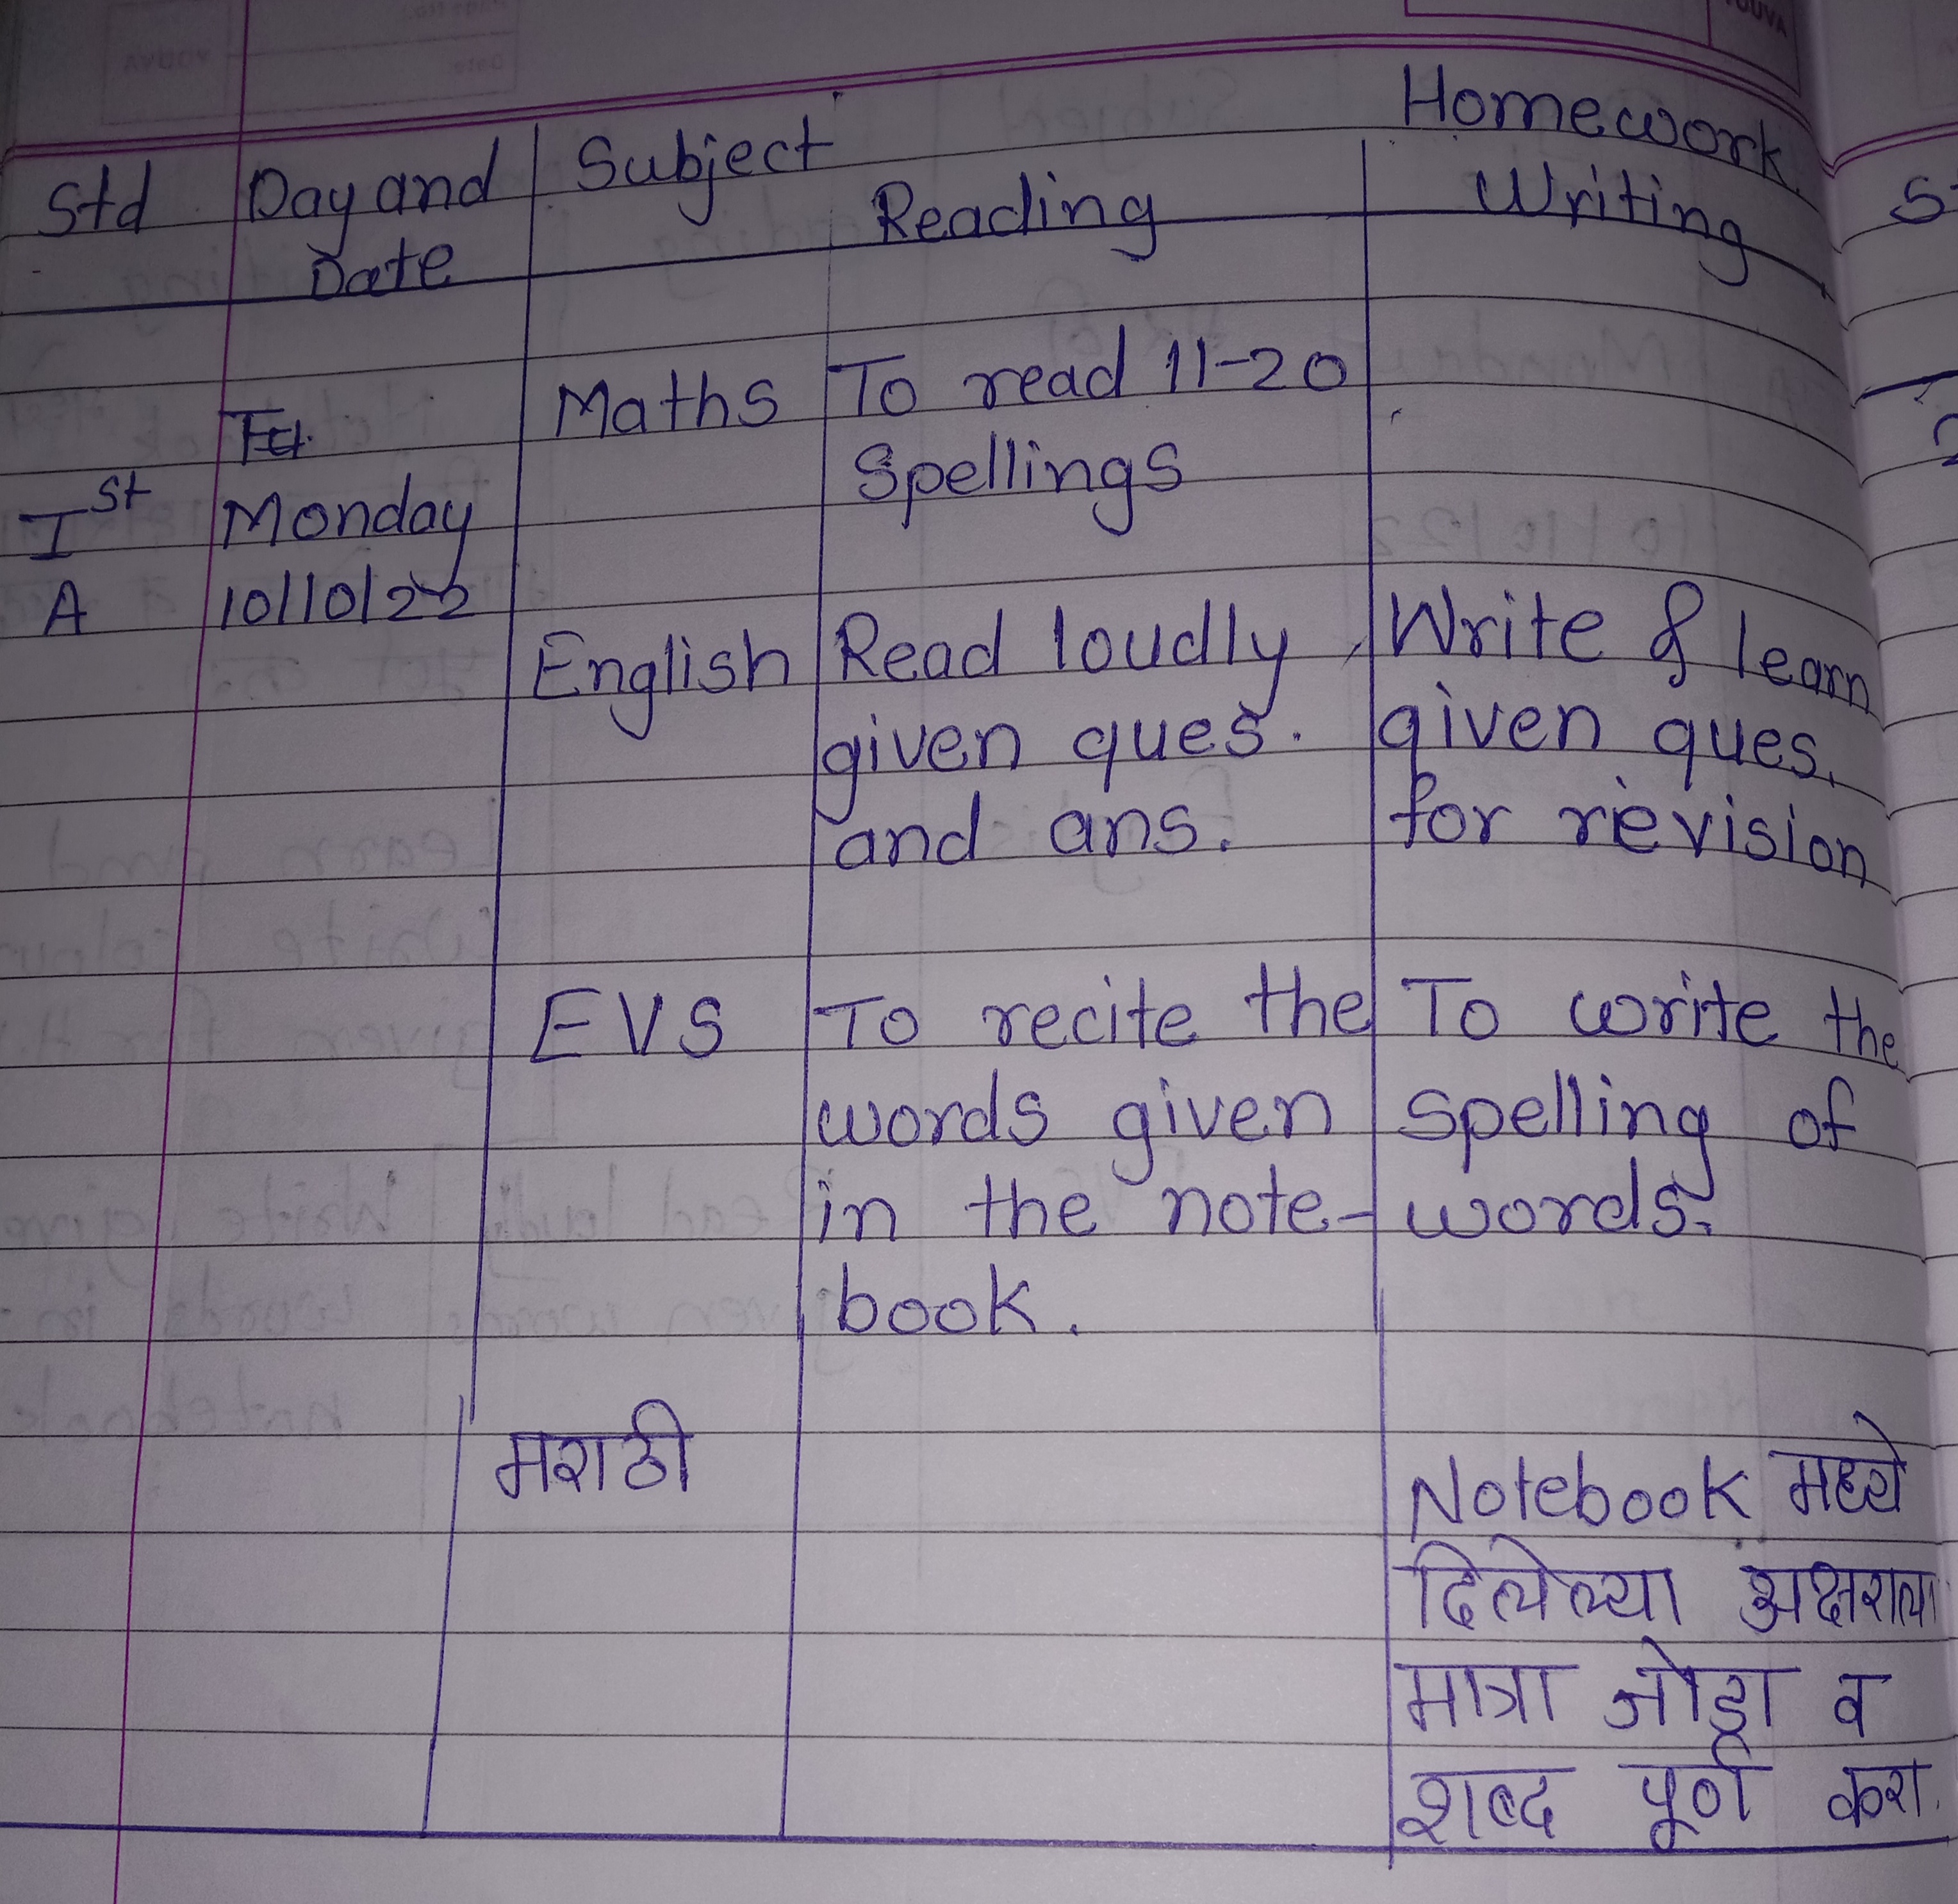 Homework
Std Day and Subject Reading Writing
Date
Maths To read 11-20
Spellings
Ist Monday
A 10/10/22
English Read loudly Write & learn
given ques. given ques.
and ans. for revision
EVS To recite the To write the
words given spelling of
in the note- words.
book.
मराठी Notebook मध्ये
दिलेल्या अक्षराला
मात्रा जोडा व
शब्द पूर्ण करा.